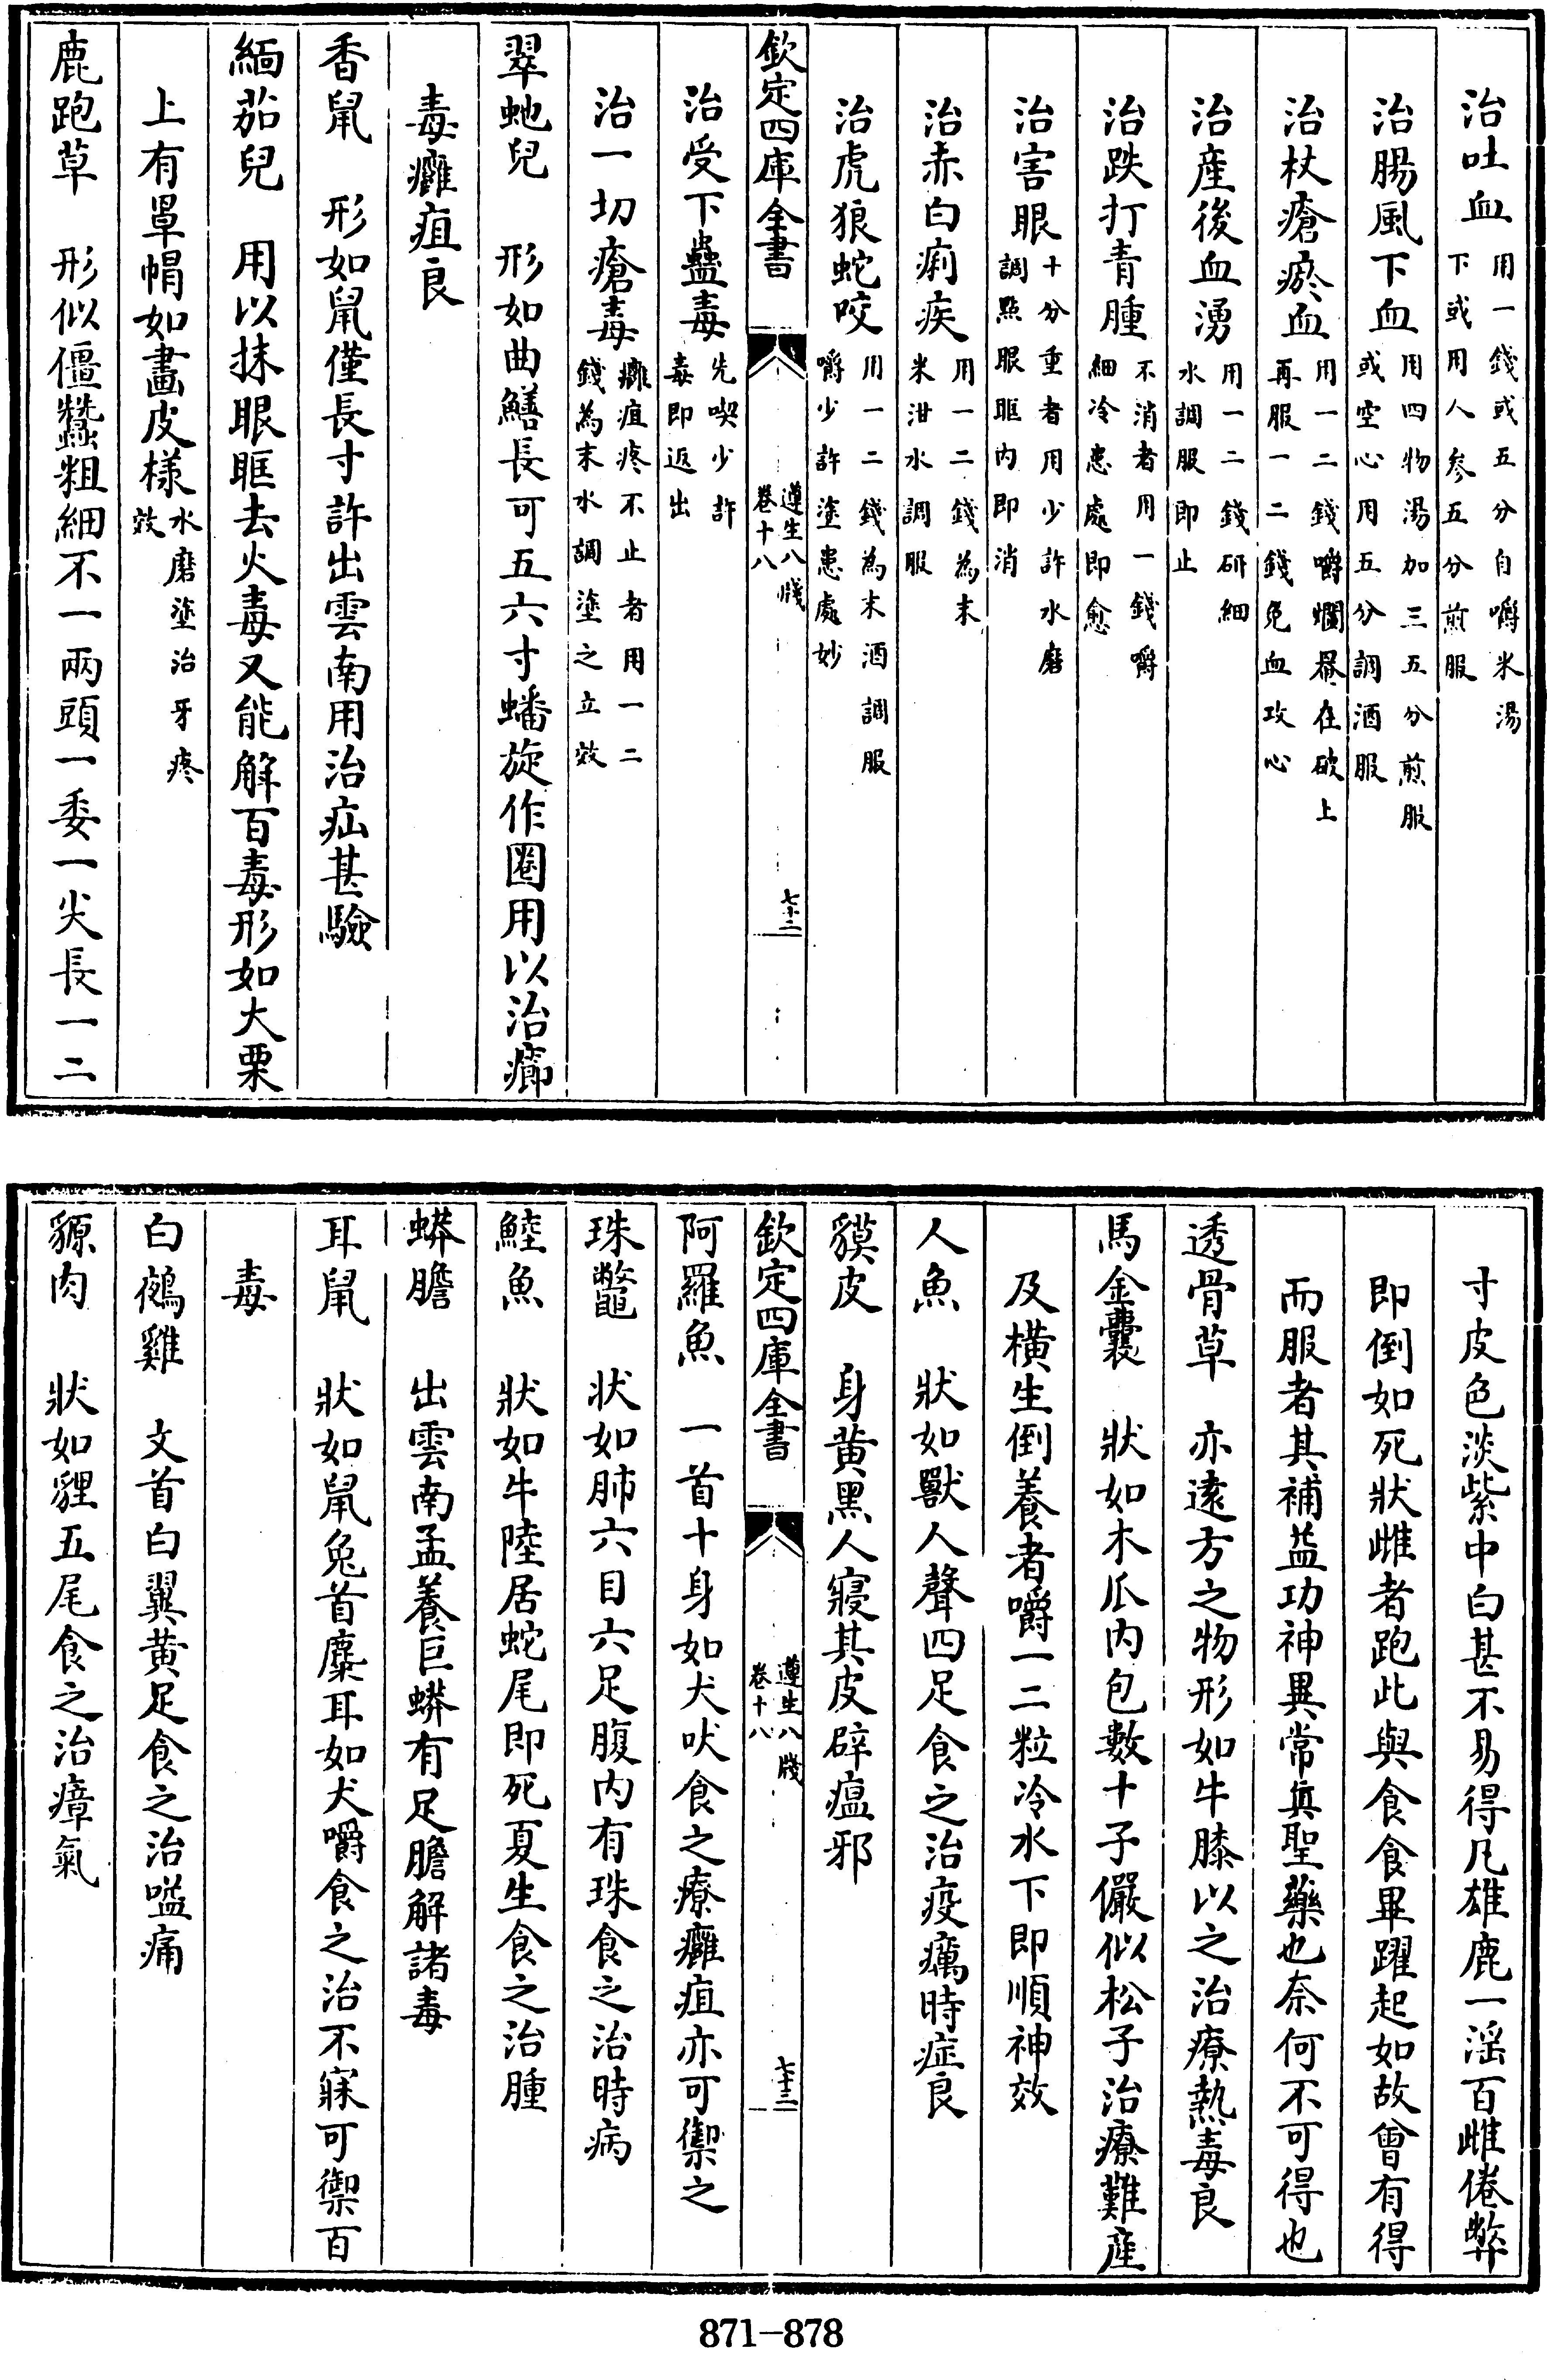 治吐血用一錢或五分自嚼米湯下或用人參五分煎服
治腸風下血用四物湯加三五分煎服或空心用五分調酒服
治杖瘡瘀血用一二錢嚼爛罨在破上再服一二錢免血攻心
治產後血湧用一二錢研細水調服即止
治跌打青腫不消者用一錢嚼細冷患處即愈
治害眼十分重者用少許水磨調點眼眶內即消
治赤白痢疾用一二錢為末米泔水調服
治虎狼蛇咬用一二錢為末酒調服嚼少許塗患處妙
欽定四庫全書 遵生八牋卷十八 七十二
治受下蠱毒先喫少許毒即返出
治一切瘡毒癰疽疼不止者用一二錢為末水調塗之立效
翠虵兒 形如曲鱔長可五六寸蟠旋作圈用以治癤
毒癰疽良
香鼠 形如鼠僅長寸許出雲南用治疝甚驗
緬茄兒 用以抹眼眶去火毒又能解百毒形如大栗
上有罩帽如畫皮樣水磨塗治牙疼效
鹿跑草 形似僵蠶粗細不一兩頭一委一尖長一二
寸皮色淡紫中白甚不易得凡雄鹿一淫百雌倦弊
即倒如死狀雌者跑此與食食畢躍起如故曾有得
而服者其補益功神異常真聖藥也奈何不可得也
透骨草 亦遠方之物形如牛膝以之治療熱毒良
馬金囊 狀如木瓜內包數十子儼似松子治療難產
及橫生倒養者嚼一二粒冷水下即順神效
人魚 狀如獸人聲四足食之治疫癘時症良
貘皮 身黃黑人寢其皮辟瘟邪
欽定四庫全書 遵生八牋卷十八 七十三
阿羅魚 一首十身如犬吠食之療癰疽亦可禦之
珠鼈 狀如肺六目六足腹內有珠食之治時病
鯥魚 狀如牛陸居蛇尾即死夏生食之治腫
蟒膽 出雲南孟養巨蟒有足膽解諸毒
耳鼠 狀如鼠兔首麋耳如犬嚼食之治不寐可禦百
毒
白鵺雞 文首白翼黃足食之治嗌痛
獂肉 狀如貍五尾食之治瘴氣
871-878